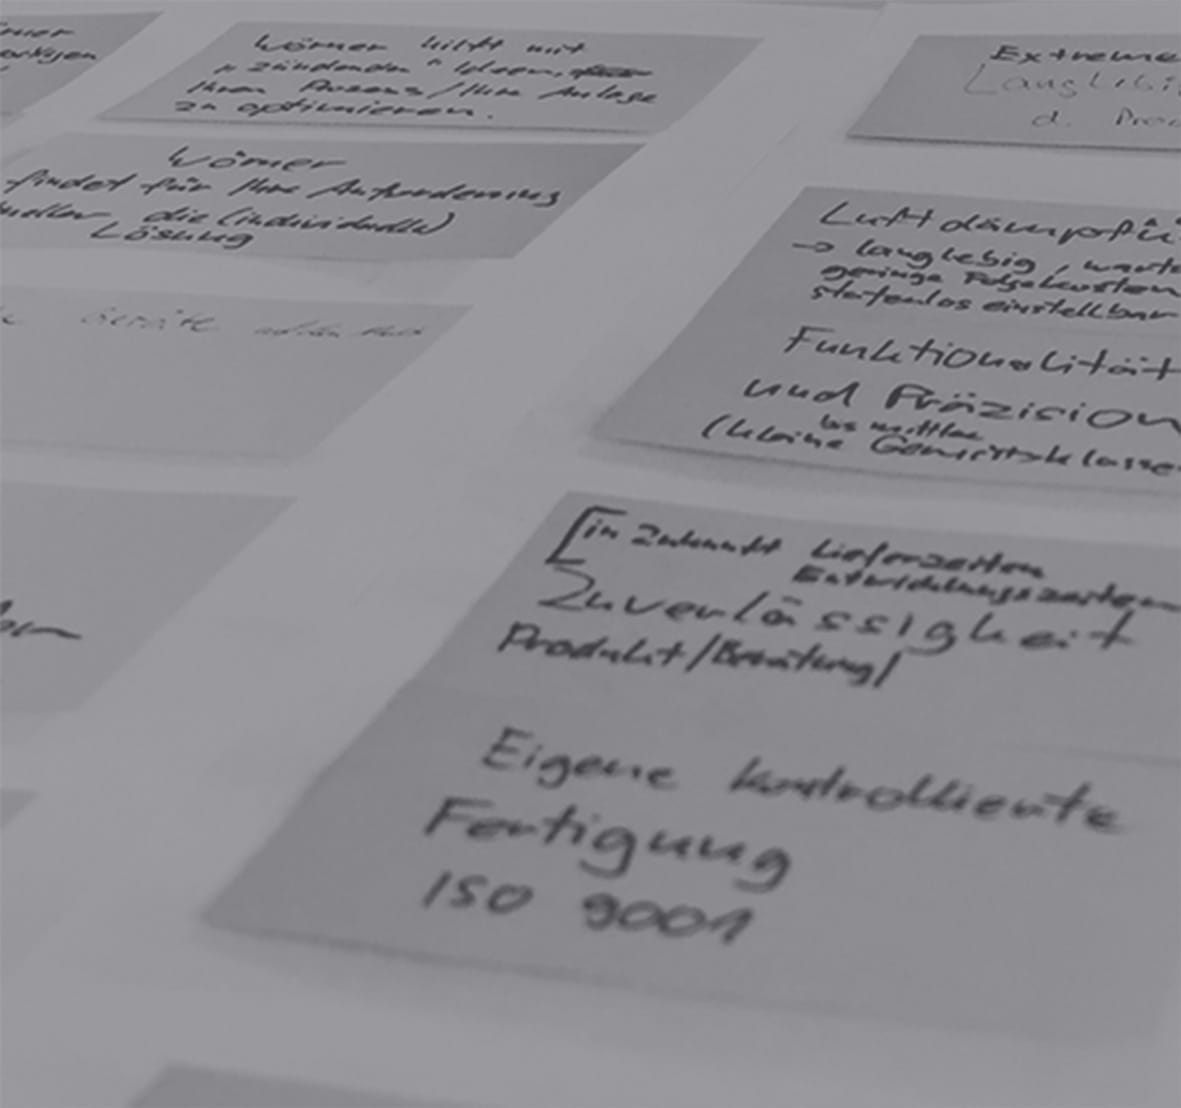 Wörner hilft mit
"zündenden" Ideen,
Ihren Prozess/Ihre Anlage
zu optimieren.
Wörner
findet für Ihre Anforderung
die (individuelle)
Lösung
Geräte auf dem Markt
Extreme
Langlebi
d. Prod
Luftdämpfu
→ langlebig, warte
geringe Folgekosten
stufenlos einstellbar
Funktionalität
und Präzision
bis mittlere
(kleine Gewichtsklasse
[in Zukunft Lieferzeiten
Entwicklungszeiten
Zuverlässigkeit
Produkt/Beratung/
Eigene kontrollierte
Fertigung
ISO 9001